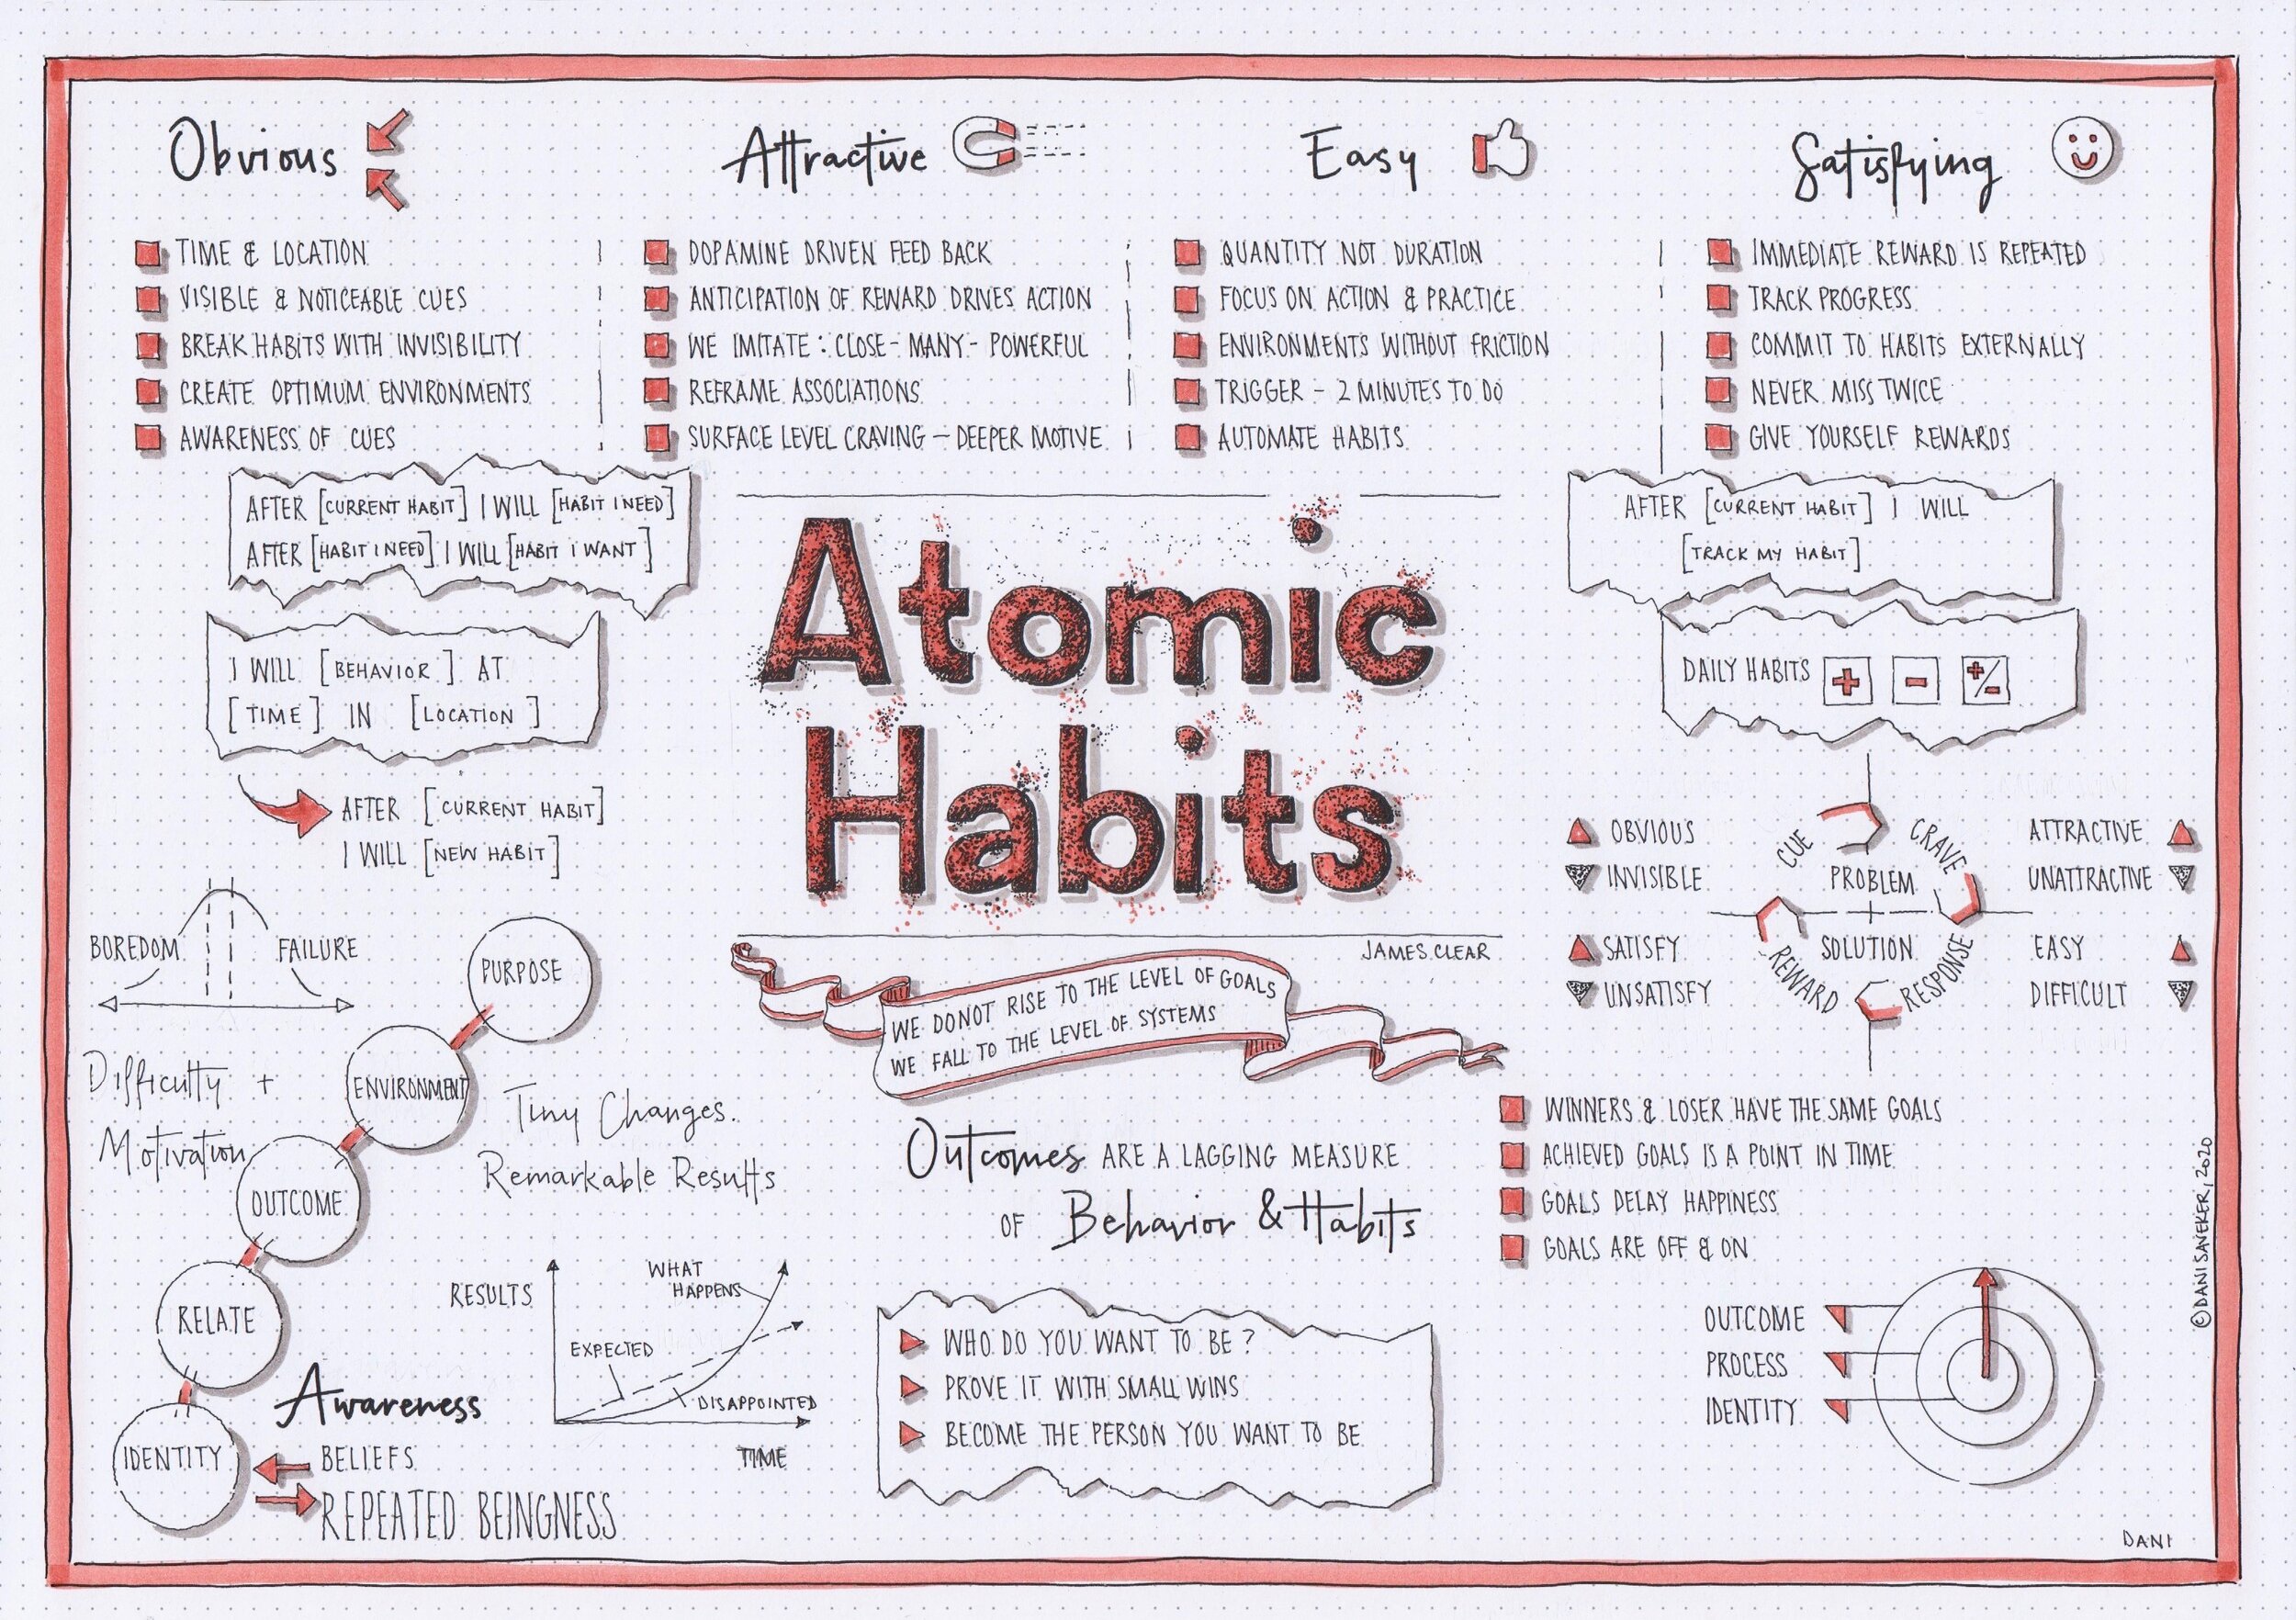 Obvious
TIME & LOCATION
VISIBLE & NOTICEABLE CUES
BREAK HABITS WITH INVISIBILITY
CREATE OPTIMUM ENVIRONMENTS
AWARENESS OF CUES
Attractive
DOPAMINE DRIVEN FEED BACK
ANTICIPATION OF REWARD DRIVES ACTION
WE IMITATE: CLOSE - MANY - POWERFUL
REFRAME ASSOCIATIONS
SURFACE LEVEL CRAVING - DEEPER MOTIVE
Easy
QUANTITY NOT DURATION
FOCUS ON ACTION & PRACTICE
ENVIRONMENTS WITHOUT FRICTION
TRIGGER - 2 MINUTES TO DO
AUTOMATE HABITS
Satisfying
IMMEDIATE REWARD IS REPEATED
TRACK PROGRESS
COMMIT TO HABITS EXTERNALLY
NEVER MISS TWICE
GIVE YOURSELF REWARDS
AFTER [CURRENT HABIT] I WILL [HABIT I NEED]
AFTER [HABIT I NEED] I WILL [HABIT I WANT]
I WILL [BEHAVIOR] AT
[TIME] IN [LOCATION]
AFTER [CURRENT HABIT]
I WILL [NEW HABIT]
Atomic
Habits
JAMES CLEAR
WE DO NOT RISE TO THE LEVEL OF GOALS
WE FALL TO THE LEVEL OF SYSTEMS
AFTER [CURRENT HABIT] I WILL
[TRACK MY HABIT]
DAILY HABITS + - +/-
OBVIOUS
INVISIBLE
SATISFY
UNSATISFY
CUE
CRAVE
PROBLEM
SOLUTION
REWARD
RESPONSE
ATTRACTIVE
UNATTRACTIVE
EASY
DIFFICULT
BOREDOM
FAILURE
Difficulty +
Motivation
PURPOSE
ENVIRONMENT
OUTCOME
RELATE
IDENTITY
Tiny Changes.
Remarkable Results
Awareness
BELIEFS
REPEATED BEINGNESS
RESULTS
WHAT
HAPPENS
EXPECTED
DISAPPOINTED
TIME
Outcomes ARE A LAGGING MEASURE
OF Behavior & Habits
WHO DO YOU WANT TO BE?
PROVE IT WITH SMALL WINS
BECOME THE PERSON YOU WANT TO BE
WINNERS & LOSER HAVE THE SAME GOALS
ACHIEVED GOALS IS A POINT IN TIME
GOALS DELAY HAPPINESS
GOALS ARE OFF & ON
OUTCOME
PROCESS
IDENTITY
© DANI SAVEKER, 2020
DANI